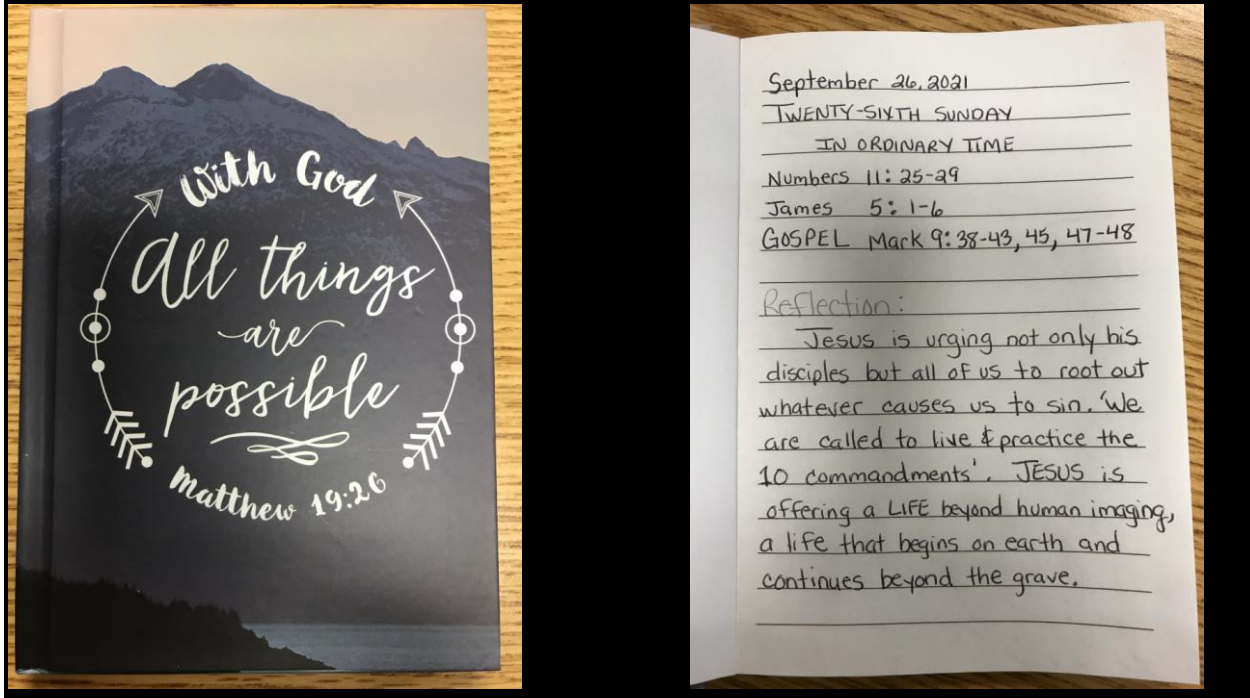 With God
All things
are
possible
Matthew 19:26
September 26, 2021
TWENTY-SIXTH SUNDAY
IN ORDINARY TIME
Numbers 11: 25-29
James 5: 1-6
GOSPEL Mark 9: 38-43, 45, 47-48
Reflection:
Jesus is urging not only his
disciples but all of us to root out
whatever causes us to sin. 'We
are called to live & practice the
10 commandments'. JESUS is
offering a LIFE beyond human imaging,
a life that begins on earth and
continues beyond the grave.